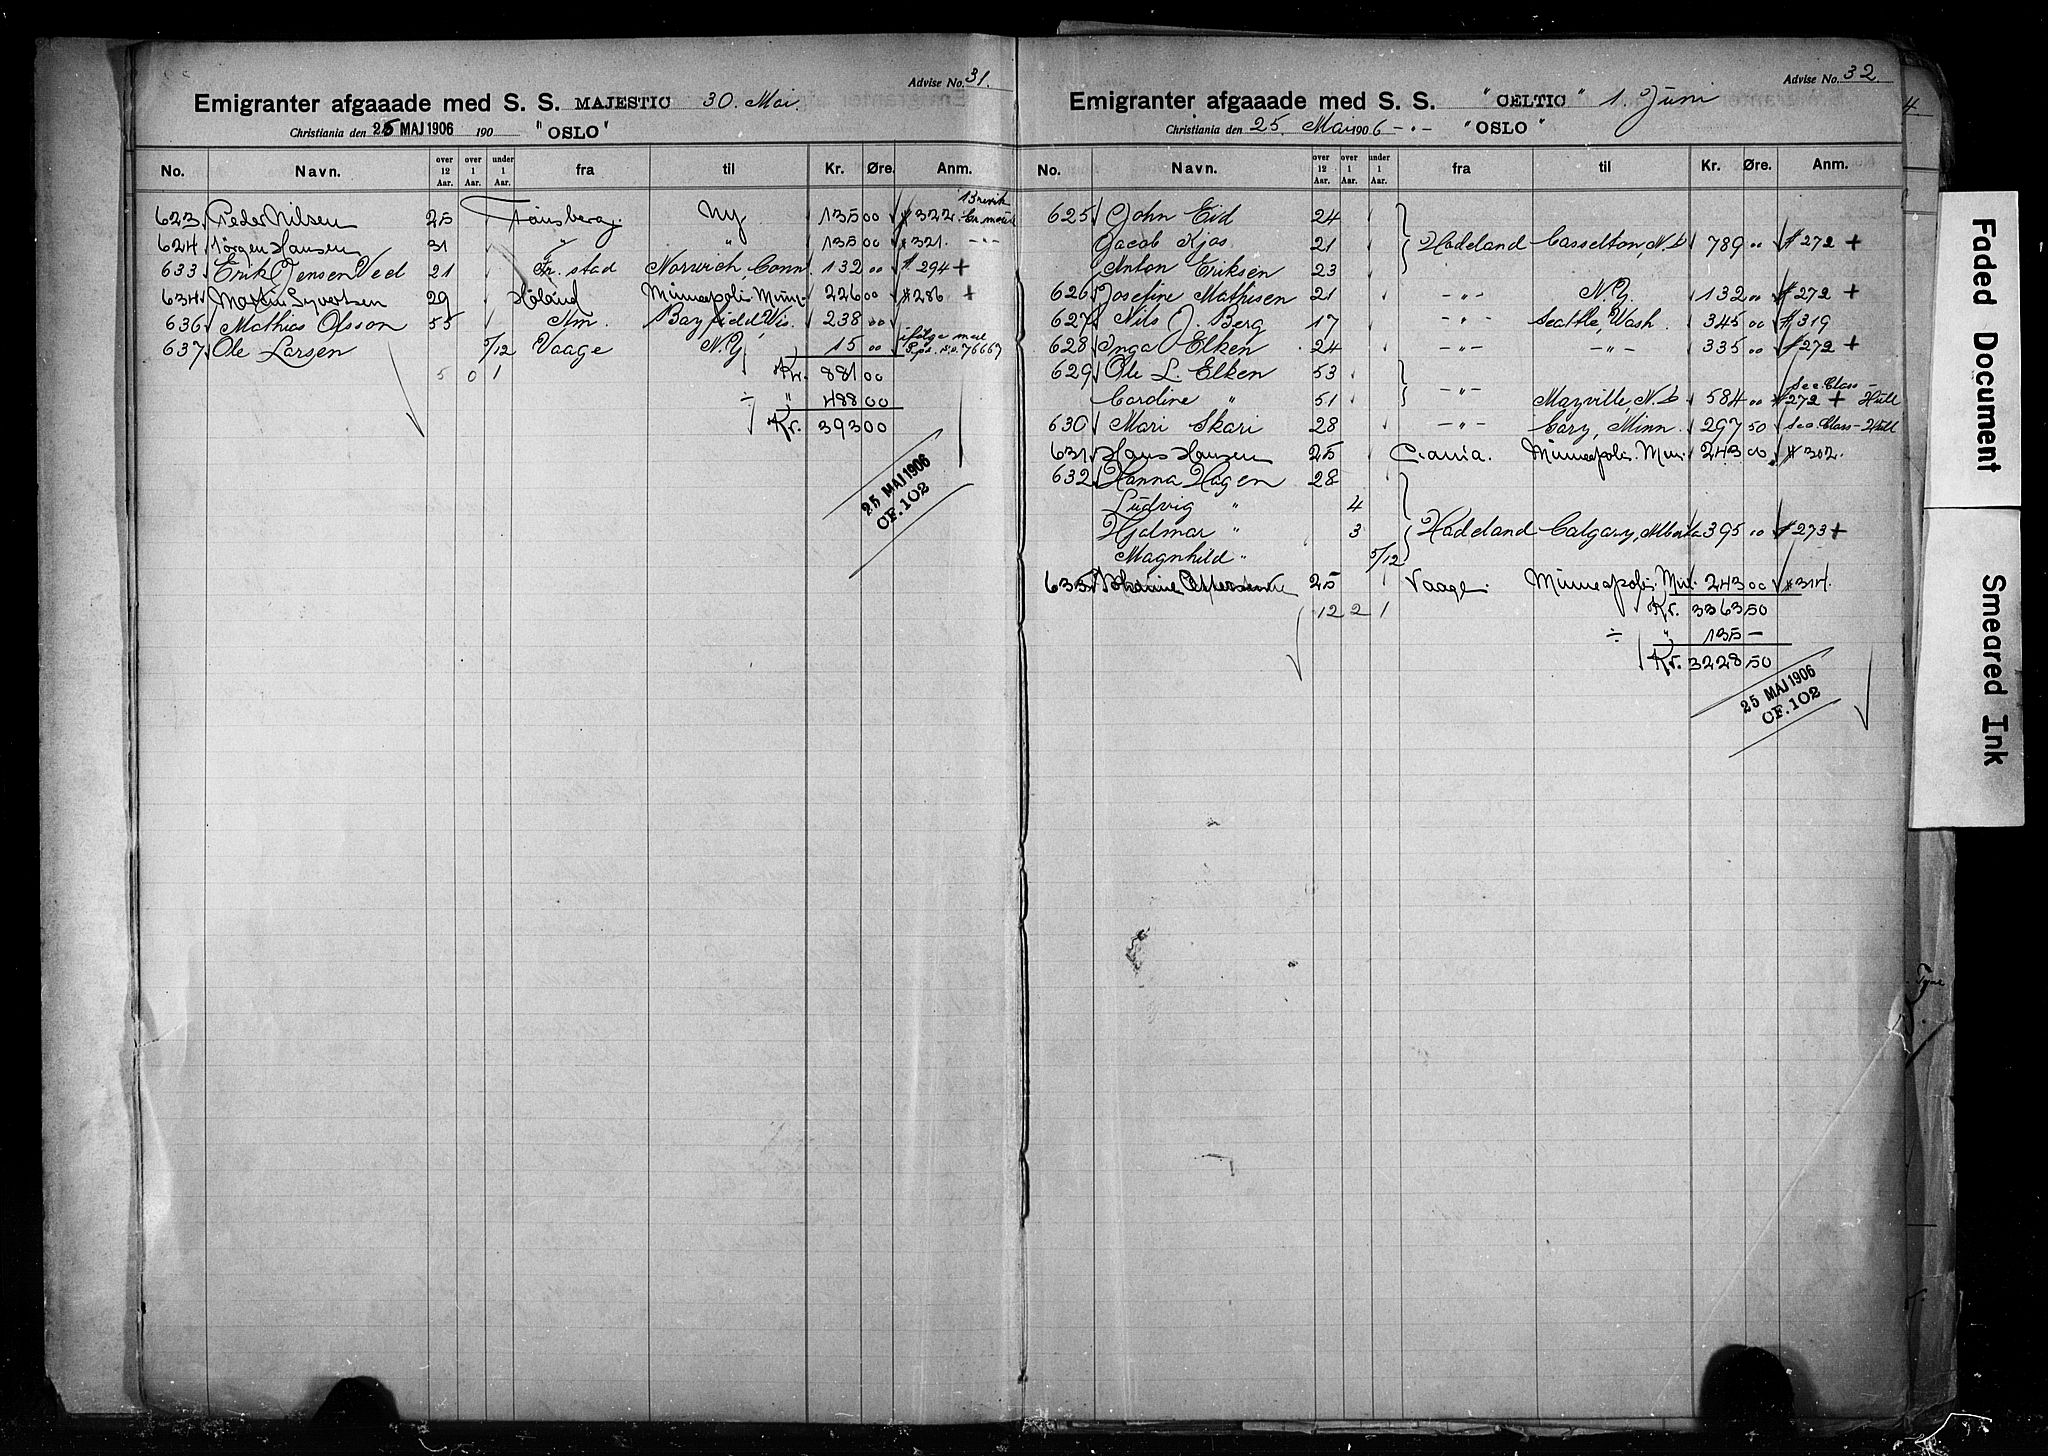 Advise No. 31.
Emigranter afgaaade med S. S. MAJESTIC 30. Mai.
Christiania den 25 MAJ 1906 190 "OSLO"
No. Navn. over 12 Aar. over 1 Aar. under 1 Aar. fra til Kr. Øre. Anm.
623 Peder Nilsen 25 Tønsberg. NY 135 00 # 322.
624 Jörgen Hansen 31 " " 135 00 # 321. -"-
633 Erik Jensen Ved 21 Fr. stad Norwich, Conn 132 00 # 294 +
634 Martin Syvertsen 29 Höland Minneapolis Minn. 226 00 # 286 +
636 Mathias Olsson 55 Hm. Bayfield, Wis. 238 00
637 Ole Larsen 5/12 Vaage N.Y. 15 00 ifölge med Spr. no. 76667
5 0 1 Kr. 881 00
÷ " 488 00
Kr. 393 00
25 MAJ 1906
CF. 102
Advise No. 32.
Emigranter afgaaade med S. S. "CELTIC" 1. Juni
Christiania den 25. Mai 1906 -"- "OSLO"
No. Navn. over 12 Aar. over 1 Aar. under 1 Aar. fra til Kr. Øre. Anm.
625 John Eid 24
Jacob Kjos 21 Hadeland Casselton, N.D. 789 00 # 272 +
Anton Eriksen 23
626 Josefine Mathisen 21 -"- N.Y. 132 00 # 272 +
627 Nils J. Berg 17 -"- Seattle, Wash. 345 00 # 319
628 Inga Elken 24 -"- -"- 335 00 # 272 +
629 Ole L. Elken 53
Cardine " 51 -"- Mayville, N.D. 584 00 # 272 + See. Class - Hull
630 Mari Skari 28 -"- Cary, Minn. 297 50 See Class - Hull
631 Hans Hansen 25 C.ania. Minneapolis. Min. 243 00 # 302.
632 Hanna Hagen 28
Ludvig " 4
Hjalmar " 3 Hadeland Calgary, Alberta 395 00 # 273 +
Magnhild " 5/12
633 25 Vaage. Minneapolis. Min. 243 00 # 314.
12 2 1 Kr. 3363 50
÷ " 135 -
Kr. 3228 50
25 MAJ 1906
CF. 102
Faded Document
Smeared Ink
Tyne